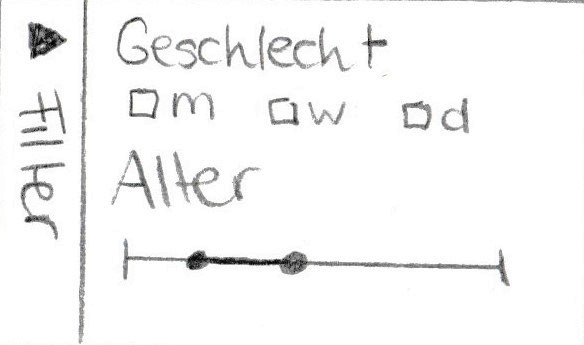 Filter
Geschlecht
m w d
Alter